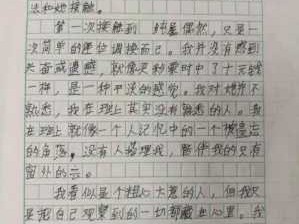 法和她接触。
第一次接触到 纯是偶然，只是一
次简单的座位调换而已。我并没有感到
失苗或遗憾，就像买彩票时中了十元钱
一样，是一种平淡的感觉。我对她并不
熟悉，我在班上其实没有熟悉的人。我
在班上就像一个人记忆中的一个被遗忘
的角落，没有人搭理我，陪伴我的只有
窗外的云。
我看似是个粗心大意的人，但我只
是把自己观察到的一切都藏在心里。我